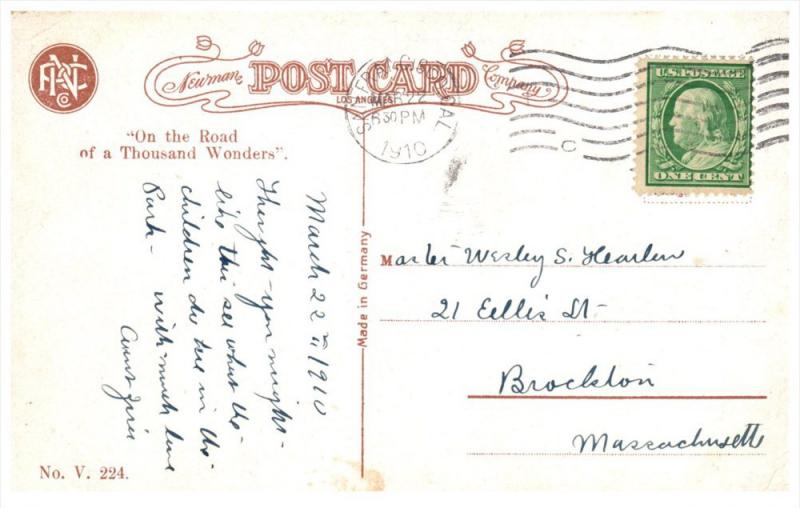 PNC Co
Newman POST CARD Company
LOS ANGELES
"On the Road
of a Thousand Wonders".
MAR 22
630 PM
1910
C
U.S. POSTAGE
ONE CENT
March 22nd 1910
Thought you might
like this see what the
children do here in the
Park - with much love
Aunt
Made in Germany
Master Wesley S.
21 Ellis St
Brockton
Massachusetts
No. V. 224.